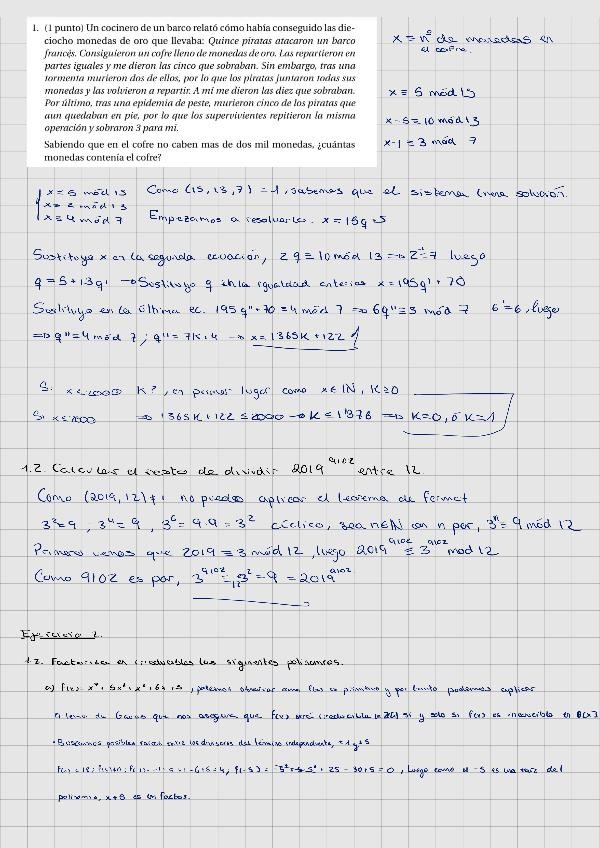 1. (1 punto) Un cocinero de un barco relató cómo había conseguido las die-
ciocho monedas de oro que llevaba: Quince piratas atacaron un barco
francés. Consiguieron un cofre lleno de monedas de oro. Las repartieron en
partes iguales y me dieron las cinco que sobraban. Sin embargo, tras una
tormenta murieron dos de ellos, por lo que los piratas juntaron todas sus
monedas y las volvieron a repartir. A mí me dieron las diez que sobraban.
Por último, tras una epidemia de peste, murieron cinco de los piratas que
aun quedaban en pie, por lo que los supervivientes repitieron la misma
operación y sobraron 3 para mí.
Sabiendo que en el cofre no caben mas de dos mil monedas, ¿cuántas
monedas contenía el cofre?
x = nº de monedas en
el cofre.
x ≡ 5 mód 15
x-5 ≡ 10 mód 13
x-1 ≡ 3 mód 7
x ≡ 5 mód 15 Como (15, 13, 7) = 1, sabemos que el sistema tiene solución.
x ≡ 2 mód 13
x ≡ 4 mód 7 Empezamos a resolverlo. x = 15q + 5
Sustituyo x en la segunda ecuación, 2q ≡ 10 mód 13 → 2⁻¹ = 7 luego
q = 5 + 13q' → Sustituyo q en la igualdad anterior x = 195q' + 70
Sustituyo en la última ec. 195q'' + 70 ≡ 4 mód 7 ⇒ 6q'' ≡ 3 mód 7 6⁻¹ = 6, luego
⇒ q'' = 4 mód 7; q'' = 7K + 4 → x = 1365K + 122
K?, en primer lugar como x ∈ ℕ, K ≥ 0
Si x ≤ 2000 ⇒ 1365K + 122 ≤ 2000 → K ≤ 1'376 ⇒ K=0, ó K=1
1.2. Calcular el resto de dividir 2019^9102 entre 12.
Como (2019, 12) ≠ 1 no puedo aplicar el teorema de Fermat
3² = 9, 3⁴ = 9, 3⁶ = 9·9 = 3² cíclico, sea n∈ℕ con n par, 3ⁿ = 9 mód 12
Primero vemos que 2019 ≡ 3 mód 12, luego 2019^9102 ≡ 3^9102 mod 12
Como 9102 es par, 3^9102 ≡₁₂ 3² = 9 = 2019^9102
Ejercicio 2.
1.2. Factoriza en irreducibles los siguientes polinomios.
a) podemos observar que f(x) es primitivo y por tanto podemos aplicar
el lema de Gauss que nos asegura que f(x) será irreducible en ℤ[x] si y solo si f(x) es irreducible en ℚ[x]
• Buscamos posibles raíces entre los divisores del término independiente, ±1 y ±5
luego como el -5 es una raíz del
polinomio, x+5 es un factor.